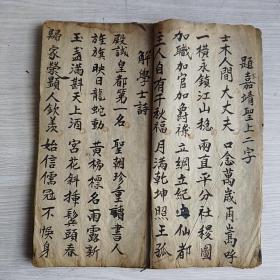 題嘉靖皇上二字
士木人間大丈夫 口念萬歲冉嵩呼
一橫永鎮江山穩 兩直平分社稷圖
加職加官加爵祿 立綱立紀 仙都
主人自有千秋福 月滿乾坤照玉孤
解學士詩
殿試皇都第一名 聖朝珍重讀書人
旌旗映日龍蛇動 黃榜標名雨露新
玉盞滿斟天上酒 宮花斜插鬢頭春
歸家榮顯人欽羨 始信儒冠不悞身